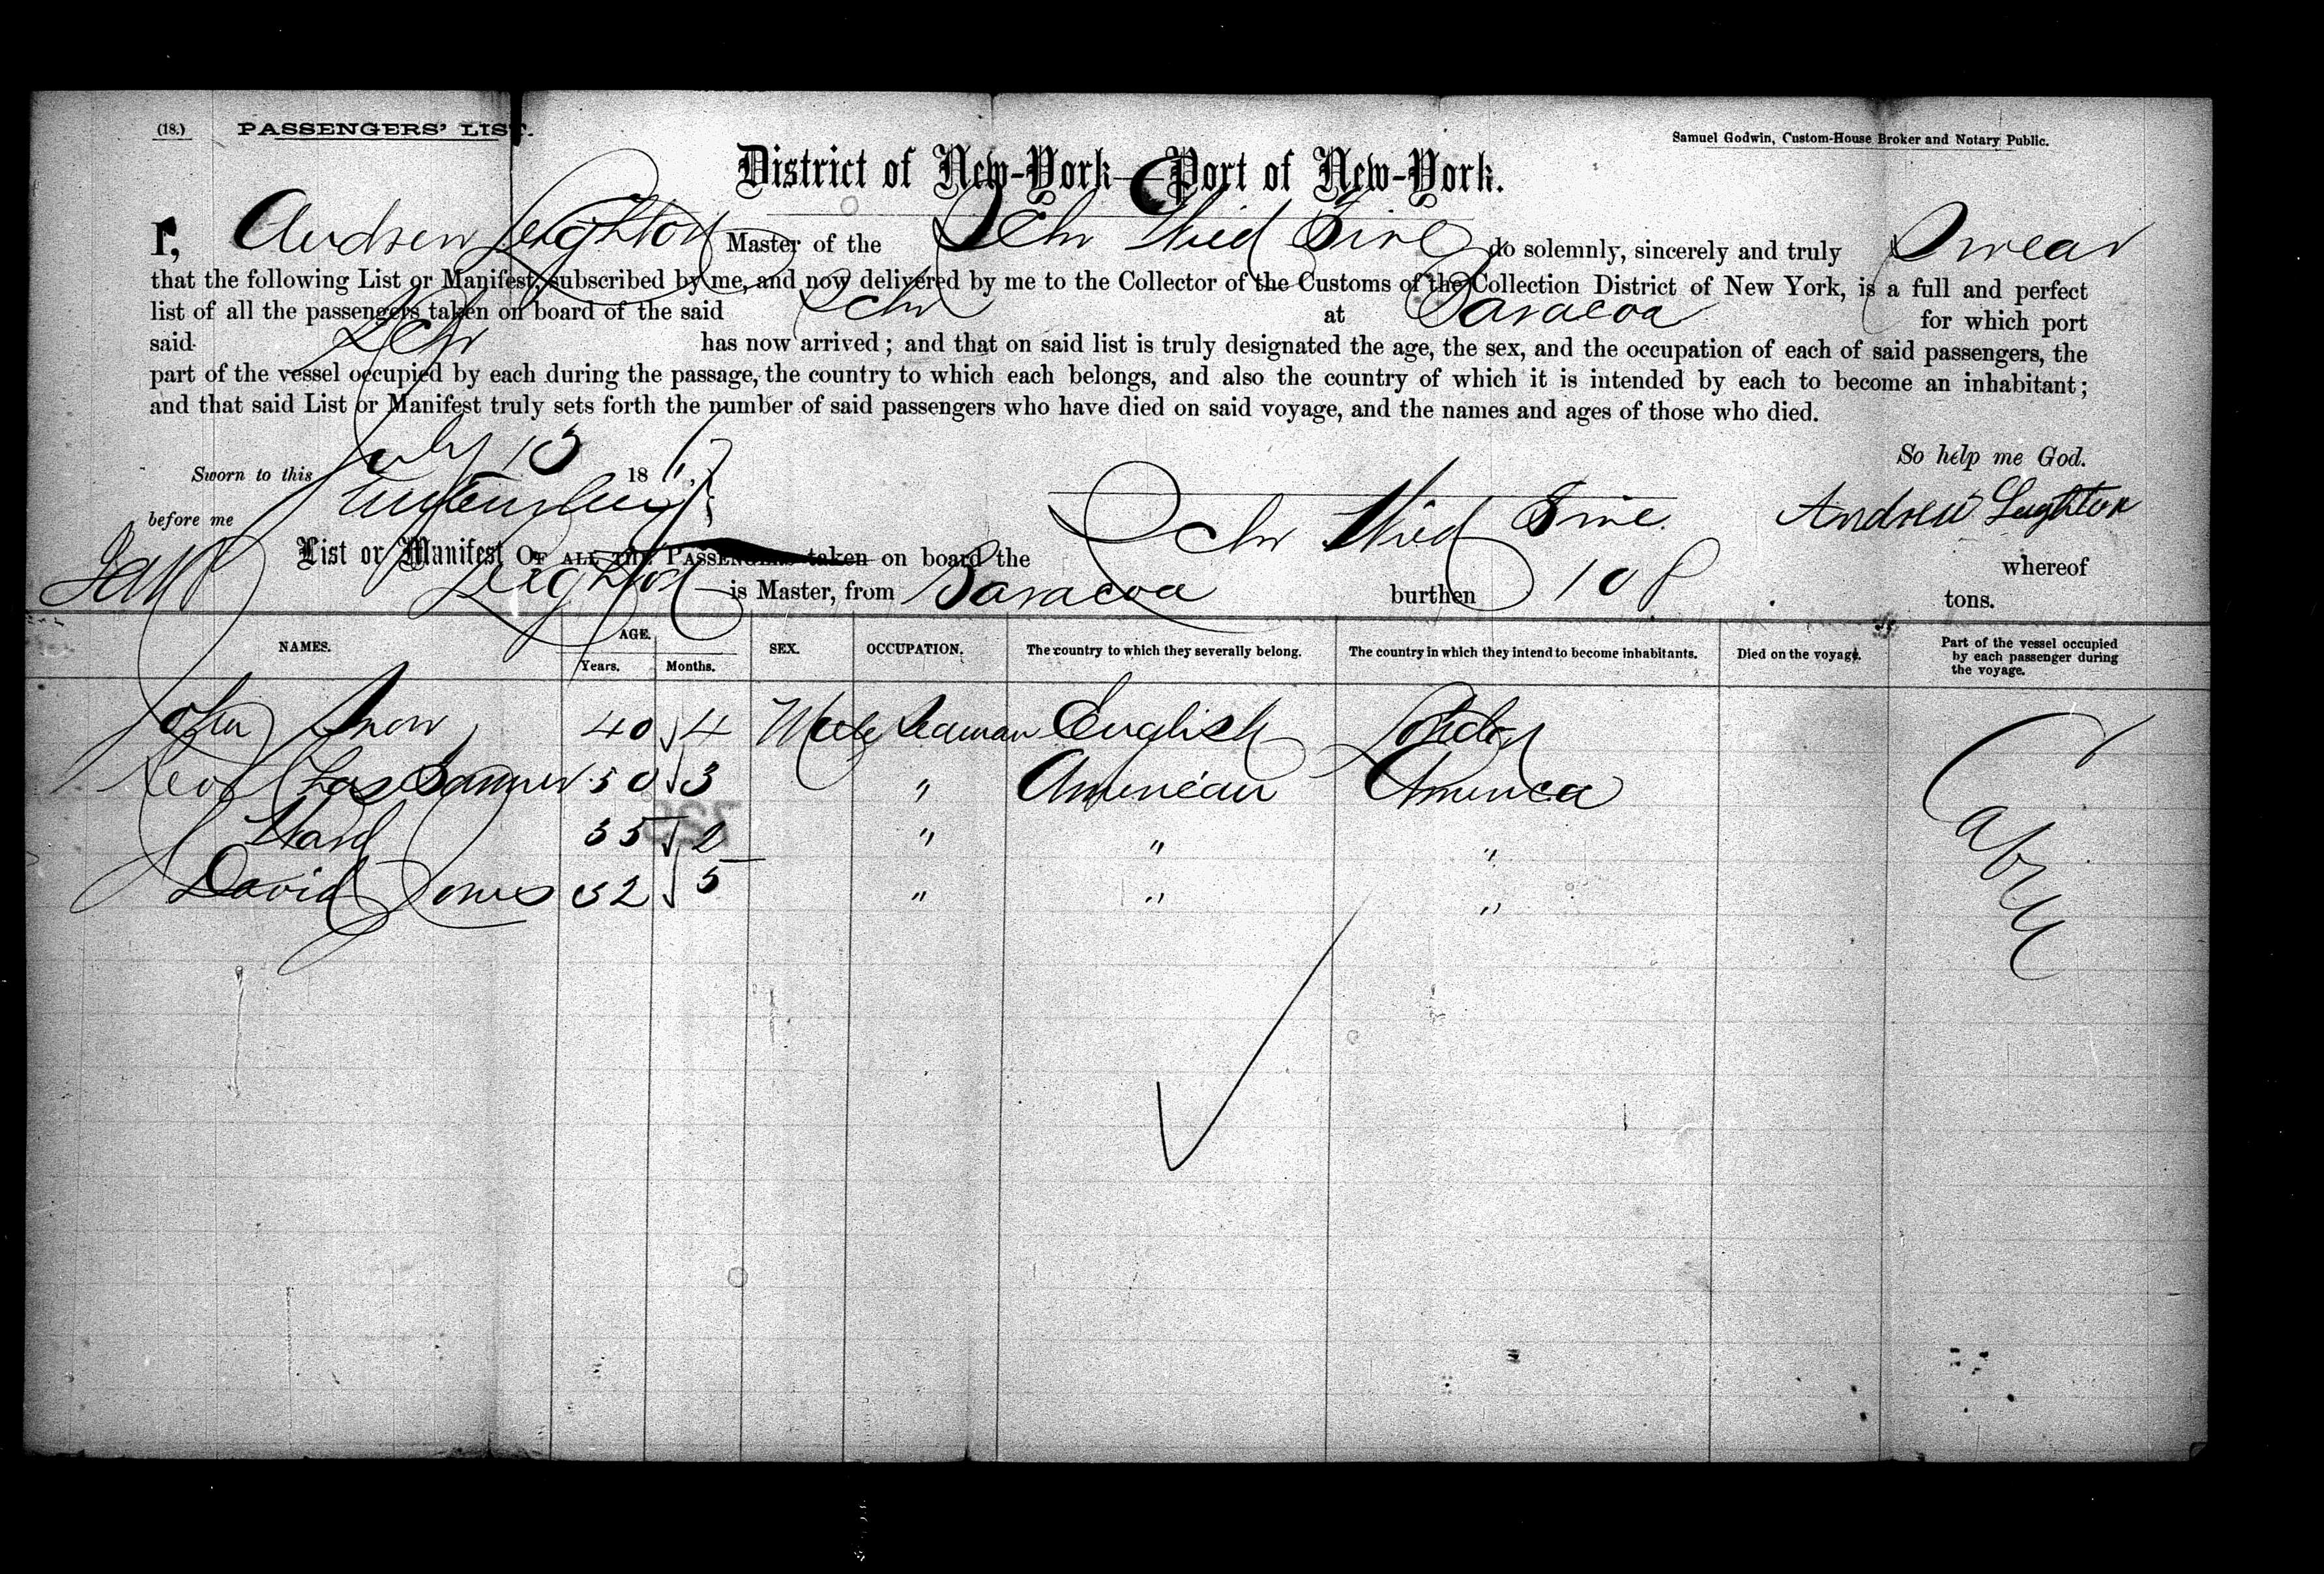 (18.) PASSENGERS' LIST. Samuel Godwin, Custom-House Broker and Notary Public.
District of New-York—Port of New-York.
I, Andrew Leighton Master of the Schr do solemnly, sincerely and truly Swear
that the following List or Manifest, subscribed by me, and now delivered by me to the Collector of the Customs of the Collection District of New York, is a full and perfect
list of all the passengers taken on board of the said Schr at Baracoa for which port
said Schr has now arrived; and that on said list is truly designated the age, the sex, and the occupation of each of said passengers, the
part of the vessel occupied by each during the passage, the country to which each belongs, and also the country of which it is intended by each to become an inhabitant;
and that said List or Manifest truly sets forth the number of said passengers who have died on said voyage, and the names and ages of those who died.
So help me God.
Sworn to this July 13 18
before me Andrew Leighton
List or Manifest OF ALL THE PASSENGERS taken on board the Schr whereof
Leighton is Master, from Baracoa burthen 108 tons.
NAMES. AGE. Years. Months. SEX. OCCUPATION. The country to which they severally belong. The country in which they intend to become inhabitants. Died on the voyage. Part of the vessel occupied by each passenger during the voyage.
John Snow 40 4 Male Seaman English London Cabin
50 3 " American America
Ward 35 2 " " "
David Jones 32 5 " " "